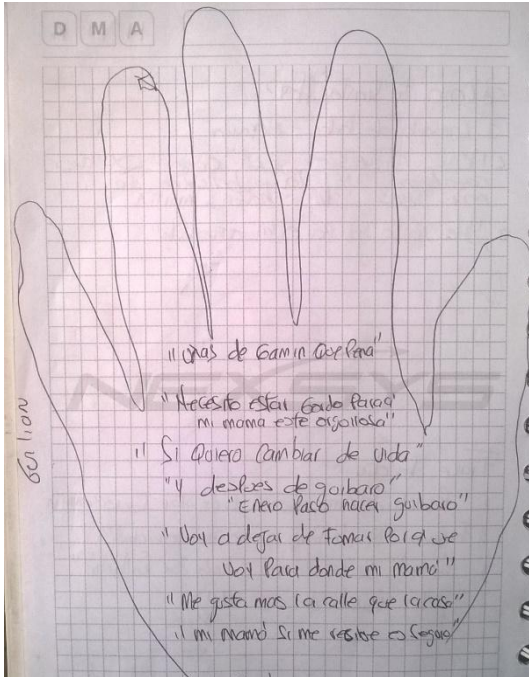 D M A
"uñas de Gamin Que Pena"
"Necesito estar Gordo Para q'
mi mama este orgollosa"
"Si Quiero Cambiar de vida"
"Y despues de guibaro"
"Enero Paso hacer guibaro"
"Voy a dejar de Tomar Porque
Voy Para donde mi mamá"
"Me gusta mas la calle que la casa"
"mi mamá si me resibe es seguro"
NEXSYS